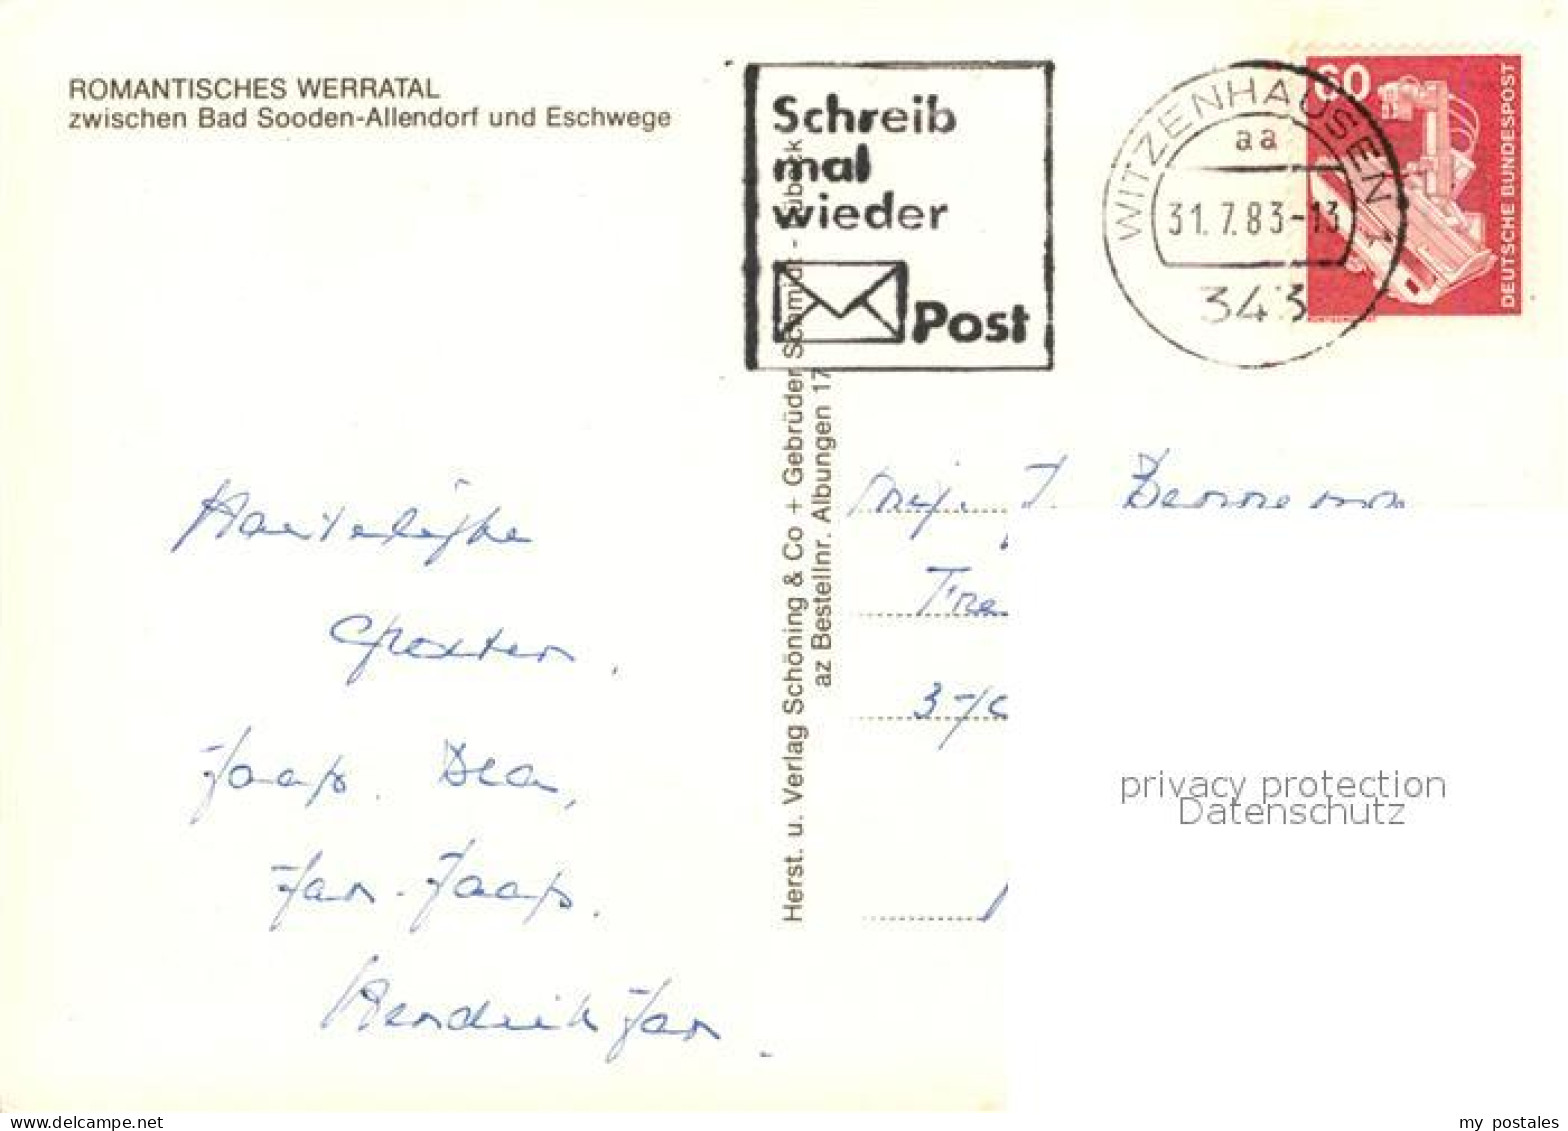 ROMANTISCHES WERRATAL
zwischen Bad Sooden-Allendorf und Eschwege
Schreib
mal
wieder
Post
WITZENHAUSEN 1
aa
31.7.83-13
343
60
DEUTSCHE BUNDESPOST
Herst. u. Verlag Schöning & Co + Gebrüder Schmidt - Lübeck
az Bestellnr. Albungen 17
Hartelijke
Groeten.
Jaap. Dea,
Jan-Jaap.
Hendrik Jan.
J.
privacy protection
Datenschutz
my postales